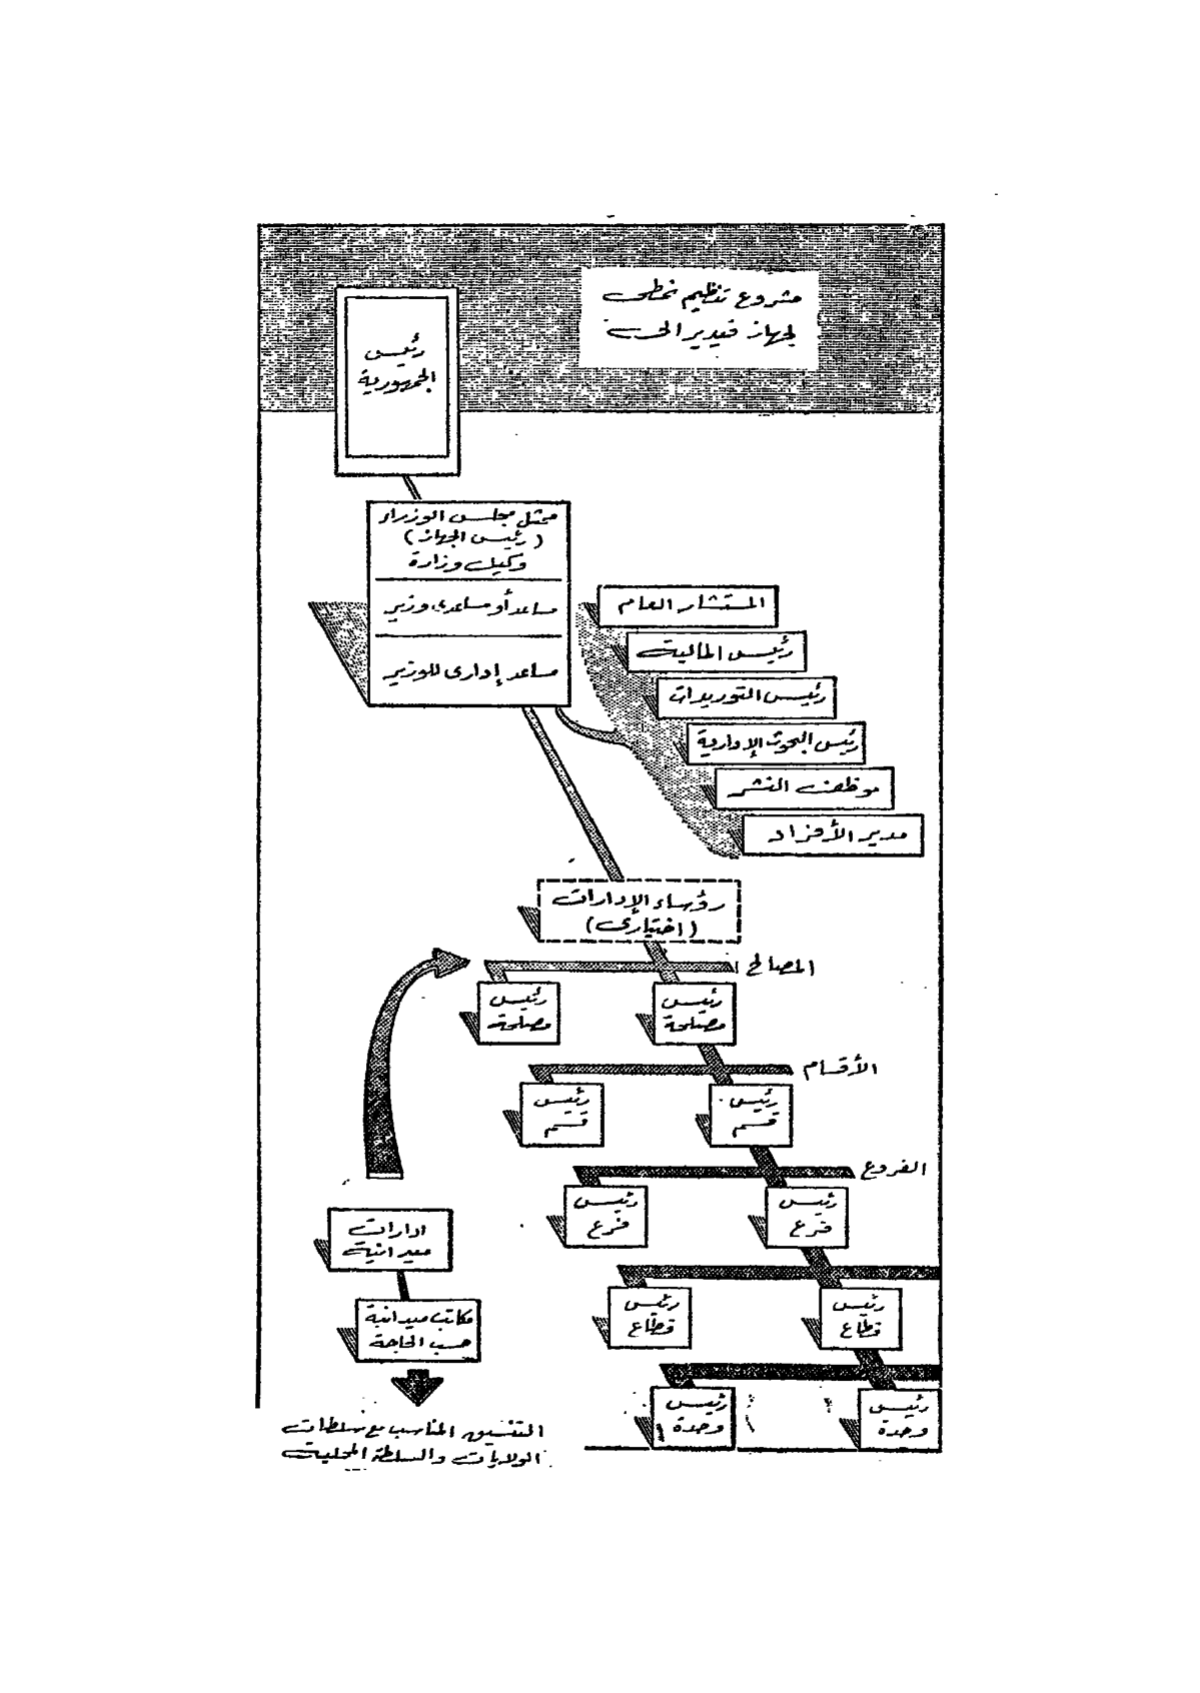 مشروع تنظيم نمطى
لجهاز فيدرالى
رئيس
الجمهورية
ممثل مجلس الوزراء
(رئيس الجهاز)
وكيل وزارة
مساعد أو مساعدى وزير
مساعد إدارى للوزير
المستشار العام
رئيس المالية
رئيس التوريدات
رئيس البحوث الإدارية
موظف النشر
مدير الأفراد
رؤساء الإدارات
(اختيارى)
المصالح
رئيس
مصلحة
رئيس
مصلحة
الأقسام
رئيس
قسم
رئيس
قسم
الفروع
رئيس
فرع
رئيس
فرع
رئيس
قطاع
رئيس
قطاع
رئيس
وحدة
رئيس
وحدة
ادارات
ميدانية
مكاتب ميدانية
حسب الحاجة
التنسيق المناسب مع سلطات
الولايات والسلطة المحلية